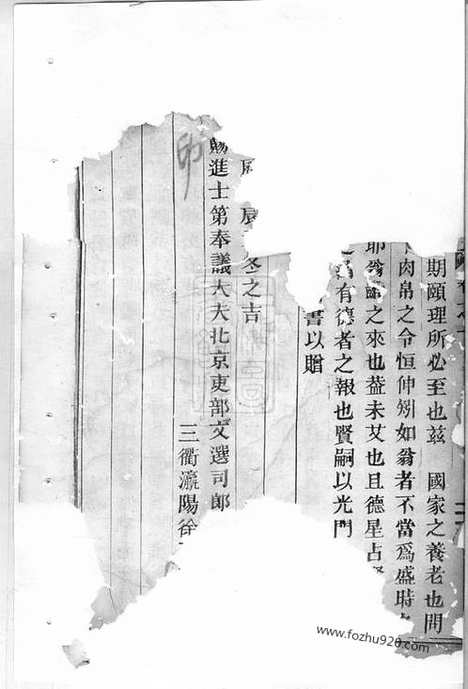 期頤理所必至也茲 國家之養老也間
肉帛之令恒伸矧如翁者不當爲盛時
耶翁壽之來也益未艾也且德星占
有德者之報也賢嗣以光門
書以贈
辰 冬之吉
賜進士第奉議大夫北京吏部文選司郎
三衢瀛陽徐
www.fozhu920.com